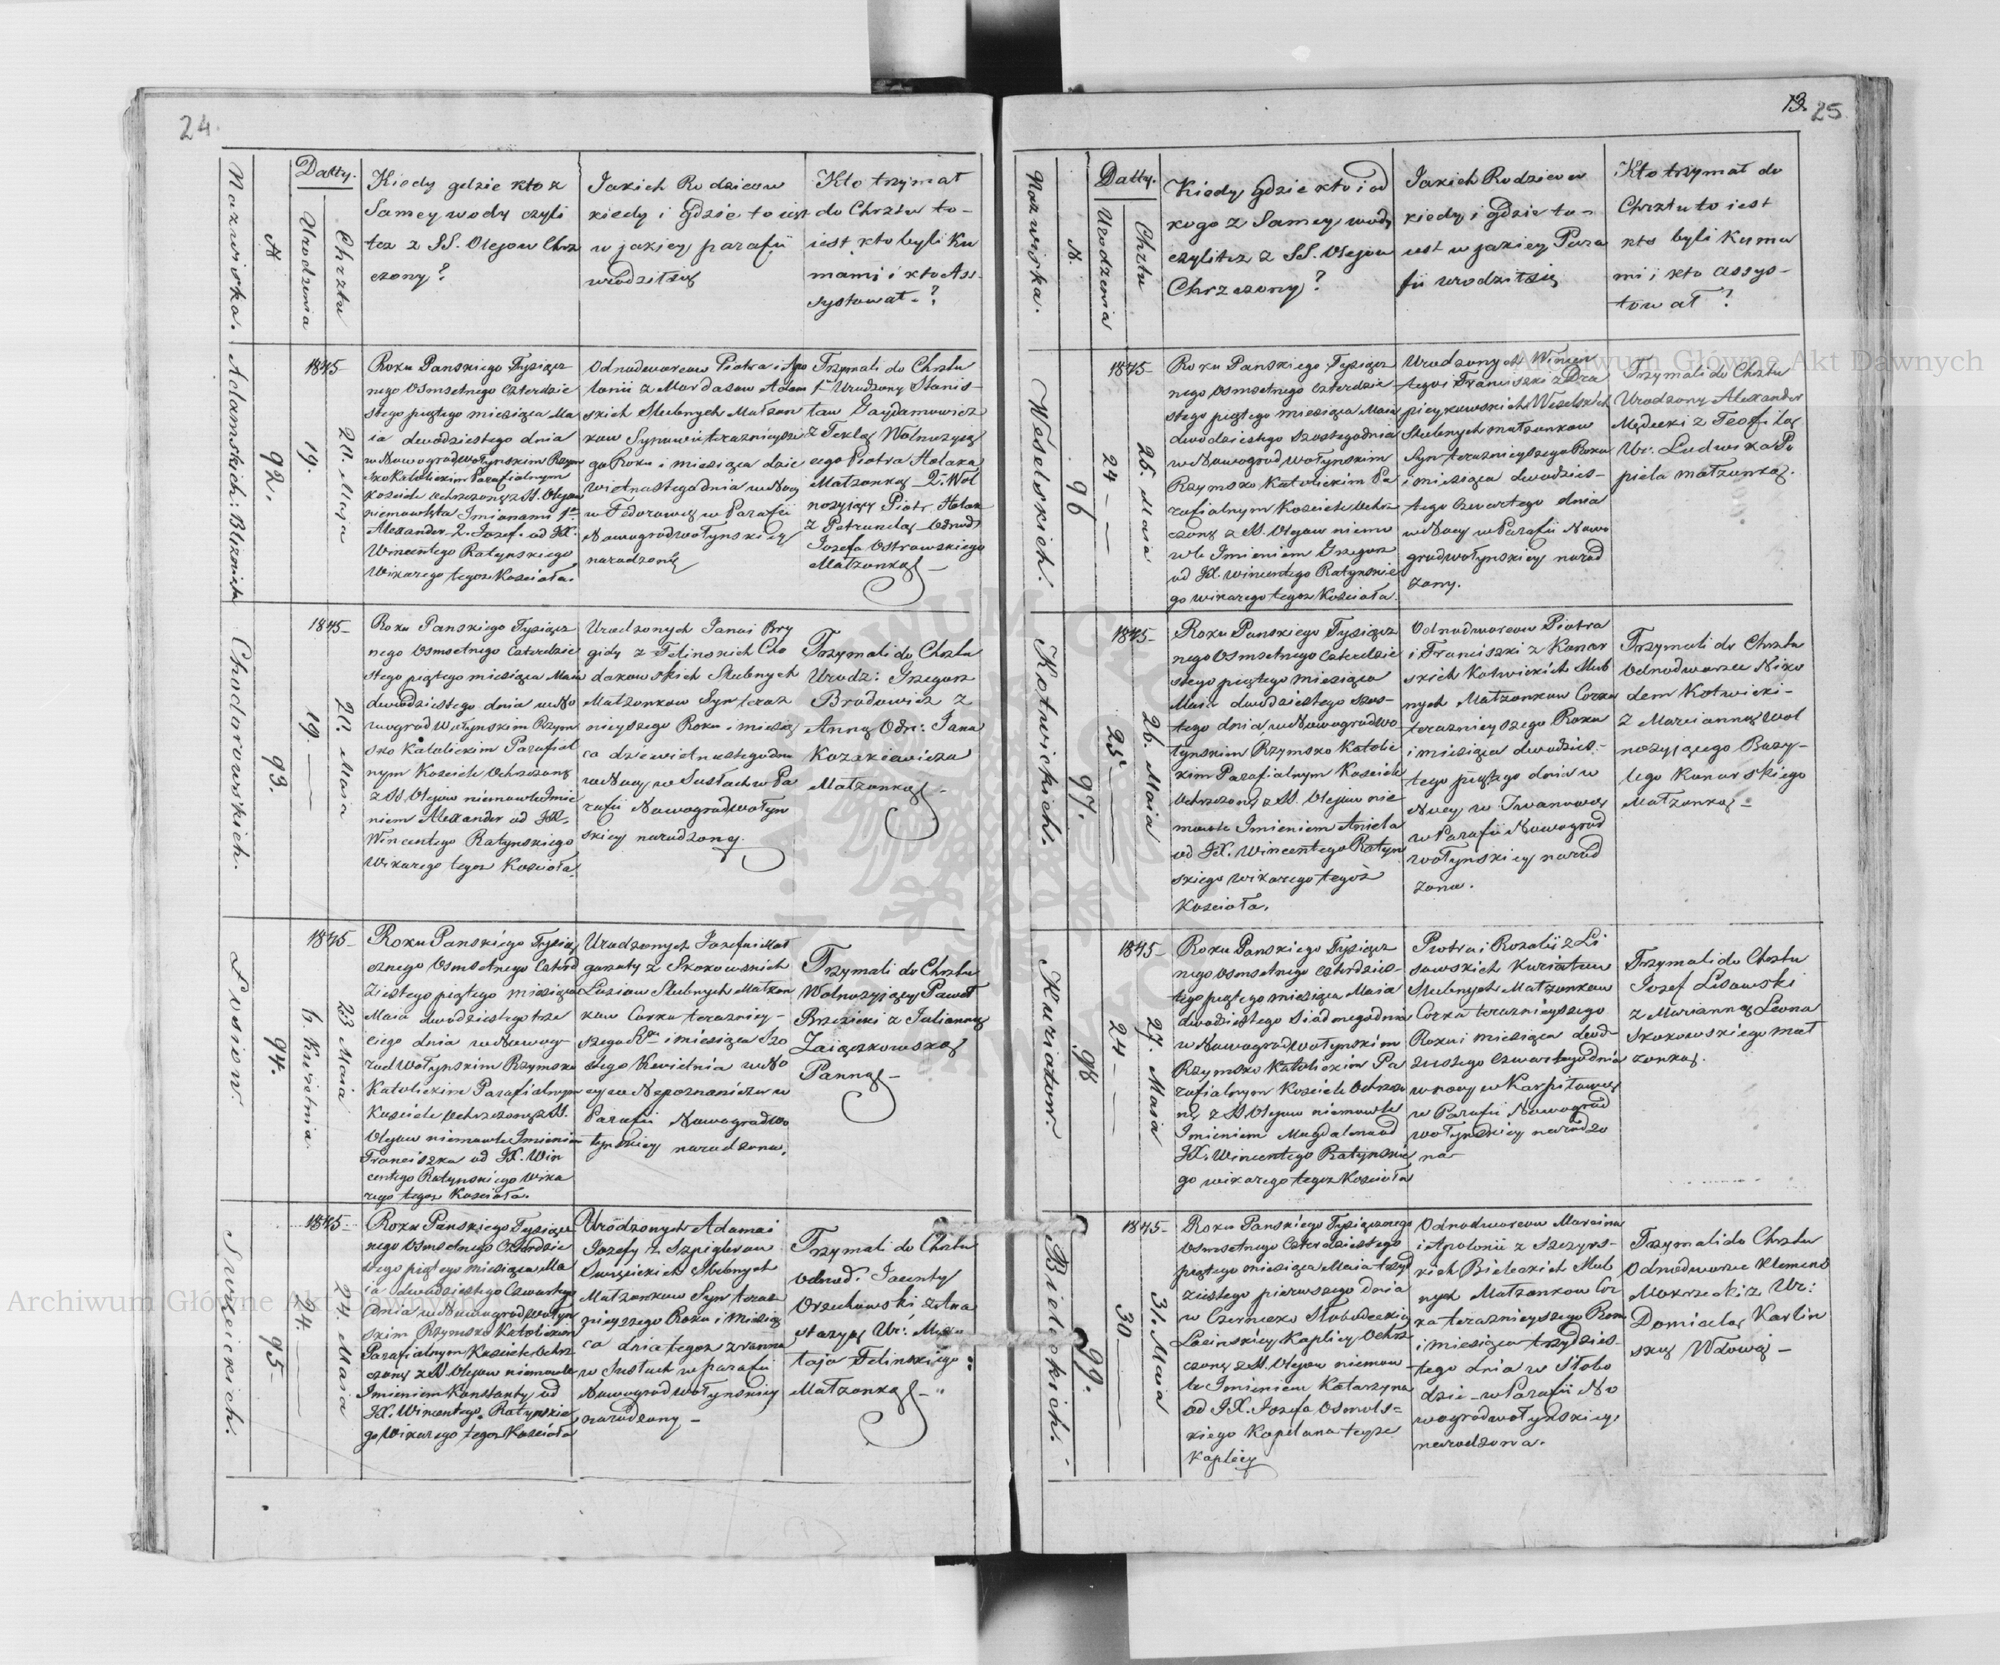 24.
Nazwiska.
N
Datty.
Urodzenia
Chrztu
Kiedy gdzie kto z
Samey wody czyli
tez z SS. Olejow Chrz
czony?
Jakich Rodzicow
kiedy i gdzie to iest
w jakiey parafii
urodził się
Kto trzymał
do Chrztu to-
iest kto byli Ku
mami i kto Ass-
systował-?
Adamskich: Bliznięta
92.
1845
19.
20. Maja
Roku Panskiego Tysiącz
nego Osmsetnego Czterdzie
stego piątego miesiąca Ma
ia dwudziestego dnia
w Nowogradwołynskim Rzym
sko Katolickim Parafialnym
Kosciele ochrzczony z SS. Olejow
niemowlęta Imionami 1e
Alexander. 2. Jozef. od JX.
Wincentego Ratynskiego
Wikarego tegoz Kościoła.
Odnodworcow Piotra i Apo
lonii z Mardasow Adam
skich Slubnych Małzon
kow Synowie teraznieysze
go Roku i miesiąca dzie
więtnastego dnia w Nocy
w Fedorowce w Parafii
Nowogradwołynskiey
narodzeni
Trzymali do Chrztu
1e Urodzony Stanis-
ław Gaydamowicz
z Teklą Wolnozyią
cego Piotra Holaka
Małzonką 2. Wol
nozyiący Piotr Holak
z Petrunelą Odnod:
Jozefa Ostrowskiego
Małzonką
Chodorowskich.
93.
1845-
19.
20. Maia
Roku Panskiego Tysiącz
nego Osmsetnego Czterdzie
stego piątego miesiąca Maia
dwudziestego dnia w No
wogradWołynskim Rzym
sko Katolickim Parafial
nym Kosciele Ochrzczony
z SS. Olejow niemowle Imie
niem Alexander od JX.
Wincentego Ratynskiego
Wikarego tegoz Kościoła.
Urodzonych Jana i Bry
gidy z Felinskich Cho
dorowskich Slubnych
Małzonkow Syn teraz
nieyszego Roku i miesią
ca dziewietnastego dnia
w Nocy w Susłach w Pa
rafii Nowogradwołyn
skiey narodzony.
Trzymali do Chrztu
Urodz: Grzegorz
Brodowicz z
Anną Odn: Jana
Kozakiewicza
Małzonką-
Łosiow.
94.
1845-
6. Kwietnia
23 Maia
Roku Panskiego Tysią
cznego Osmsetnego Czterd
ziestego piątego miesiąca
Maia dwudziestego trze
ciego dnia w Nowog-
radWołynskim Rzymsko
Katolickim Parafialnym
Kosciele Ochrzczona z SS.
Olejow niemowle Imieniem
Franciszka od JX. Win
centego Ratynskiego Wika
rego tegoz Kościoła.
Urodzonych Jozefa i Mał
gorzaty z Skokowskich
Łosiow Slubnych Małzon
kow Corka terazniey-
szego Ru i miesiąca Szo
stego Kwietnia w No
cy w Niepoznaniczu w
Parafii Nowogradwo
łynskiey narodzona.
Trzymali do Chrztu
Wolnozyiący Paweł
Brzezicki z Julianną
Zaiączkowską
Panną-
Swięcickich.
95-
1845-
24.
24. Maia
Roku Panskiego Tysiącz
nego Osmsetnego Czterdzie
stego piątego miesiąca Ma
ia dwudziestego Czwartego
dnia w Nowogradwołyn
skim Rzymsko Katolickim
Parafialnym Kosciele Ochrz
czony z SS Olejow niemowle
Imieniem Konstanty od
JX. Wincentego Ratynskie
go Wikarego tegoz Kościoła
Urodzonych Adama i
Jozefy z Szpiglerow
Swięcickich Slubnych
Małzonkow Syn teraz
nieyszego Roku i miesią
ca dnia tegoz z ranna
w Susłach w parafii
Nowogradwołynskiey
narodzony-
Trzymali do Chrztu
Odnod: Jacenty
Orzechowski z Ana
stazyą Ur: Miko
łaja Felinskiego
Małzonką-
13. 25
Nazwiska.
N.
Datty.
Urodzenia
Chrztu
Kiedy gdzie kto i od
kogo z Samey wody
czyli tez z SS. Olejow
Chrzczony?
Jakich Rodzicow
kiedy i gdzie to-
iest w jakiey Para
fii urodził się
Kto trzymał do
Chrztu to iest
kto byli Kuma
mi i kto assys-
tował?
Weselskich.
96
1845-
24
25. Maia
Roku Panskiego Tysiącz
nego Osmsetnego Czterdzie-
stego piątego miesiąca Maia
dwudziestego szostego dnia
w Nowogradwołynskim
Rzymsko Katolickim Pa
rafialnym Kosciele Ochrz
czony z SS Olejow niemo
wle Imieniem Grzegorz
od JX. Wincentego Ratynskie
go wikarego tegoz Kościoła.
Urodzonych Wincen
tego i Franciszki z Dra
pieykowskich Weselskich
Slubnych małzonkow
Syn teraznieyszego Roku
i miesiąca dwudzies-
tego Czwartego dnia
w Nocy w Parafii Nowo
gradwołynskiey narod
zony.
Trzymali do Chrztu
Urodzony Alexander
Mędecki z Teofilą
Ur: Ludwika Po
piela małzonką.
Kotwickich.
97.
1845-
25
26. Maia
Roku Panskiego Tysiącz
nego Osmsetnego Czterdzie
stego piątego miesiąca
Maia dwudziestego szos-
tego dnia w Nowogradwo
łynskim Rzymsko Katolic
kim Parafialnym Kosciele
Ochrzczony z SS. Olejow nie
mowle Imieniem Aniela
od JX. Wincentego Ratyn
skiego wikarego tegoż
Kościoła.
Odnodworcow Piotra
i Franciszki z Konar
skich Kotwickich Slub
nych Małzonkow Corka
teraznieyszego Roku
i miesiąca dwudzies-
tego piątego dnia w
Nocy w Iwanowce
w Parafii Nowograd
wołynskiey narod
zona.
Trzymali do Chrztu
Odnodworzec Niko
dem Kotwicki-
z Marcianną Wol
nozyjącego Bazy-
lego Konarskiego
Małzonką-
Kuriatow.
98
1845-
24
27. Maia
Roku Panskiego Tysiącz
nego Osmsetnego Czterdzies-
tego piątego miesiąca Maia
dwudziestego Siodmego dnia
w Nowogradwołynskim
Rzymsko Katolickim Pa
rafialnym Kosciele Ochrzczo
ny z SS Olejow niemowle
Imieniem Magdalena od
JX. Wincentego Ratynskie
go wikarego tegoz Kościoła
Piotra i Rozalii z Li
sowskich Kuriatow
Slubnych Małzonkow
Corka teraznieyszego
Roku i miesiąca dwud-
ziestego czwartego dnia
w nocy w Karpiłowce
w Parafii Nowograd
wołynskiey narodzo
na-
Trzymali do Chrztu
Jozef Lisowski
z Marianną Leona
Skokowskiego mał
zonką.
Bieleckich.
99.
1845-
30
31. Maia
Roku Panskiego Tysiącznego
Osmsetnego Czterdziestego
piątego miesiąca Maia trzyd
ziestego pierwszego dnia
w Czernczko Słobodeckiey
Lacinskiey Kaplicy Ochrz
czony z SS Olejow niemow
le Imieniem Katarzyna
od JX. Jozefa Osmols=
kiego Kapelana teyze
Kaplicy
Odnodworcow Marcina
i Apolonii z Szczyrs-
kich Bieleckich Slub
nych Małzonkow Cor
ka teraznieyszego Roku
i miesiąca trzydzies-
tego dnia w Słobo
dzie-w Parafii No
wogradwołynskiey
narodzona.
Trzymali do Chrztu
Odnodworzec Klemens
Mokrzecki z Ur:
Domicelą Karlin
ską Wdową-
Archiwum Główne Akt Dawnych
Archiwum Główne Akt Dawnych